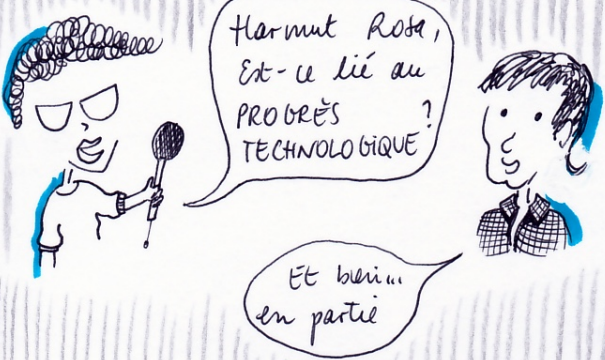 Harmut Rosa,
Est-ce lié au
PROGRÈS ?
TECHNOLOGIQUE
Et bien...
en partie